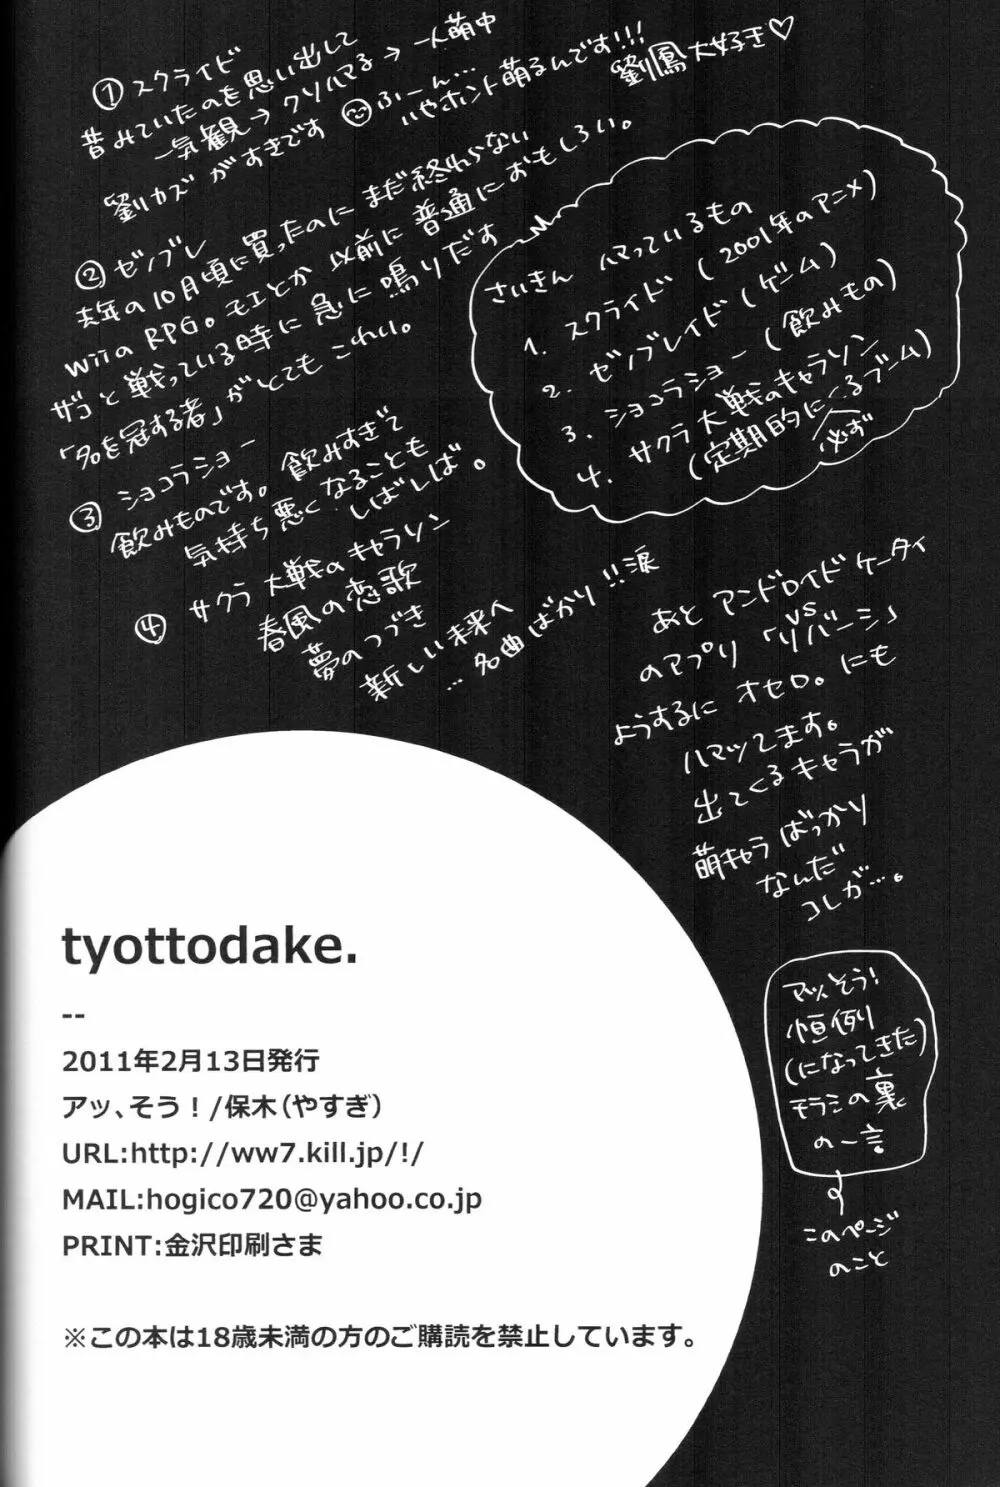 ① スクライド
昔みていたのを思い出して
一気観→クソハマる→一人萌中
劉カズがすきです ふーん…
いやホント萌るんです!!!
劉鳳大好き♡
② ゼノブレ
去年の10月頃に買ったのにまだ終わらない
WiiのRPG。モエとか以前に普通におもしろい。
ザコと戦っている時に急に鳴りだす
「名を冠する者」がとてもこわい。
③ ショコラショー
飲みものです。飲みすぎて
気持ち悪くなることも
しばしば。
④ サクラ大戦のキャラソン
春風の恋歌
夢のつづき
新しい未来へ
…名曲ばかり!!涙
さいきん ハマっているもの
1. スクライド (2001年のアニメ)
2. ゼノブレイド (ゲーム)
3. ショコラショー (飲みもの)
4. サクラ大戦のキャラソン
(定期的に必ずくるブーム)
あと アンドロイドケータイ
のアプリ「vsリバーシ」
ようするに オセロ。にも
ハマッてます。
出てくるキャラが
萌キャラばっかり
なんだ
コレが…。
アッ、そう!
恒例
(になってきた)
チラシの裏
の一言
このページ
のこと
tyottodake.
--
2011年2月13日発行
アッ、そう！/保木（やすぎ）
URL:http://ww7.kill.jp/!/
MAIL:hogico720@yahoo.co.jp
PRINT:金沢印刷さま
※この本は18歳未満の方のご購読を禁止しています。